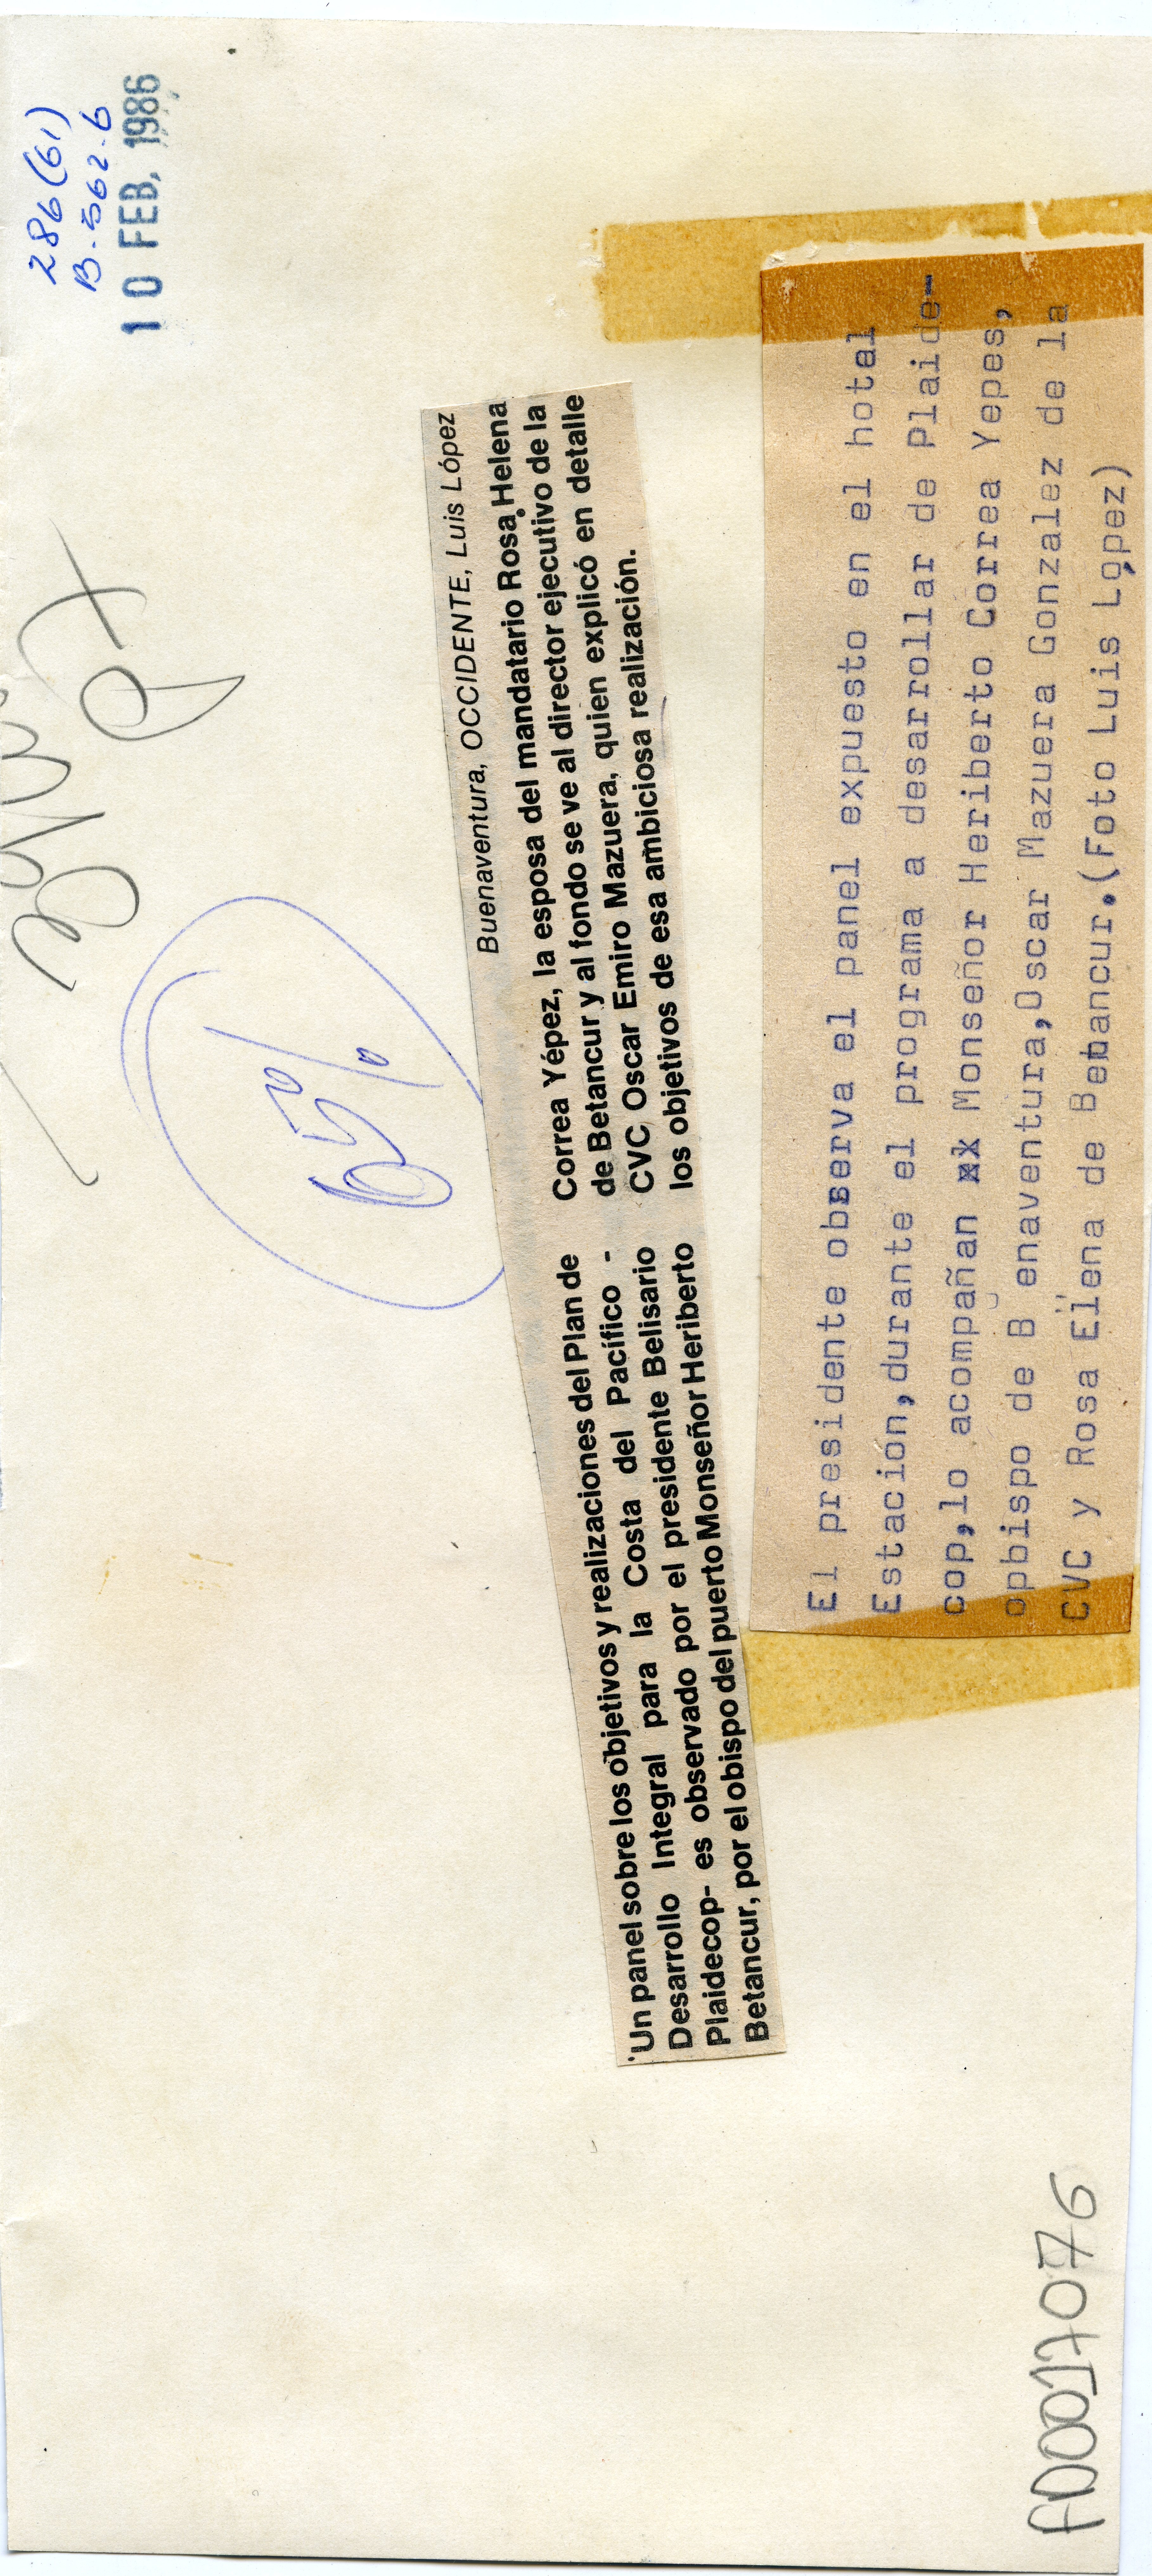 286(61)
B-562-6
10 FEB. 1986
65%
Buenaventura, OCCIDENTE, Luis López
'Un panel sobre los objetivos y realizaciones del Plan de
Desarrollo Integral para la Costa del Pacífico -
Plaidecop- es observado por el presidente Belisario
Betancur, por el obispo del puerto Monseñor Heriberto
Correa Yépez, la esposa del mandatario Rosa Helena
de Betancur y al fondo se ve al director ejecutivo de la
CVC, Oscar Emiro Mazuera, quien explicó en detalle
los objetivos de esa ambiciosa realización.
El presidente observa el panel expuesto en el hotel
Estación,durante el programa a desarrollar de Plaide-
cop,lo acompañan xx Monseñor Heriberto Correa Yepes,
opbispo de B enaventura,Oscar Mazuera Gonzalez de la
CVC y Rosa Elena de Betancur.(Foto Luis López)
F00017076